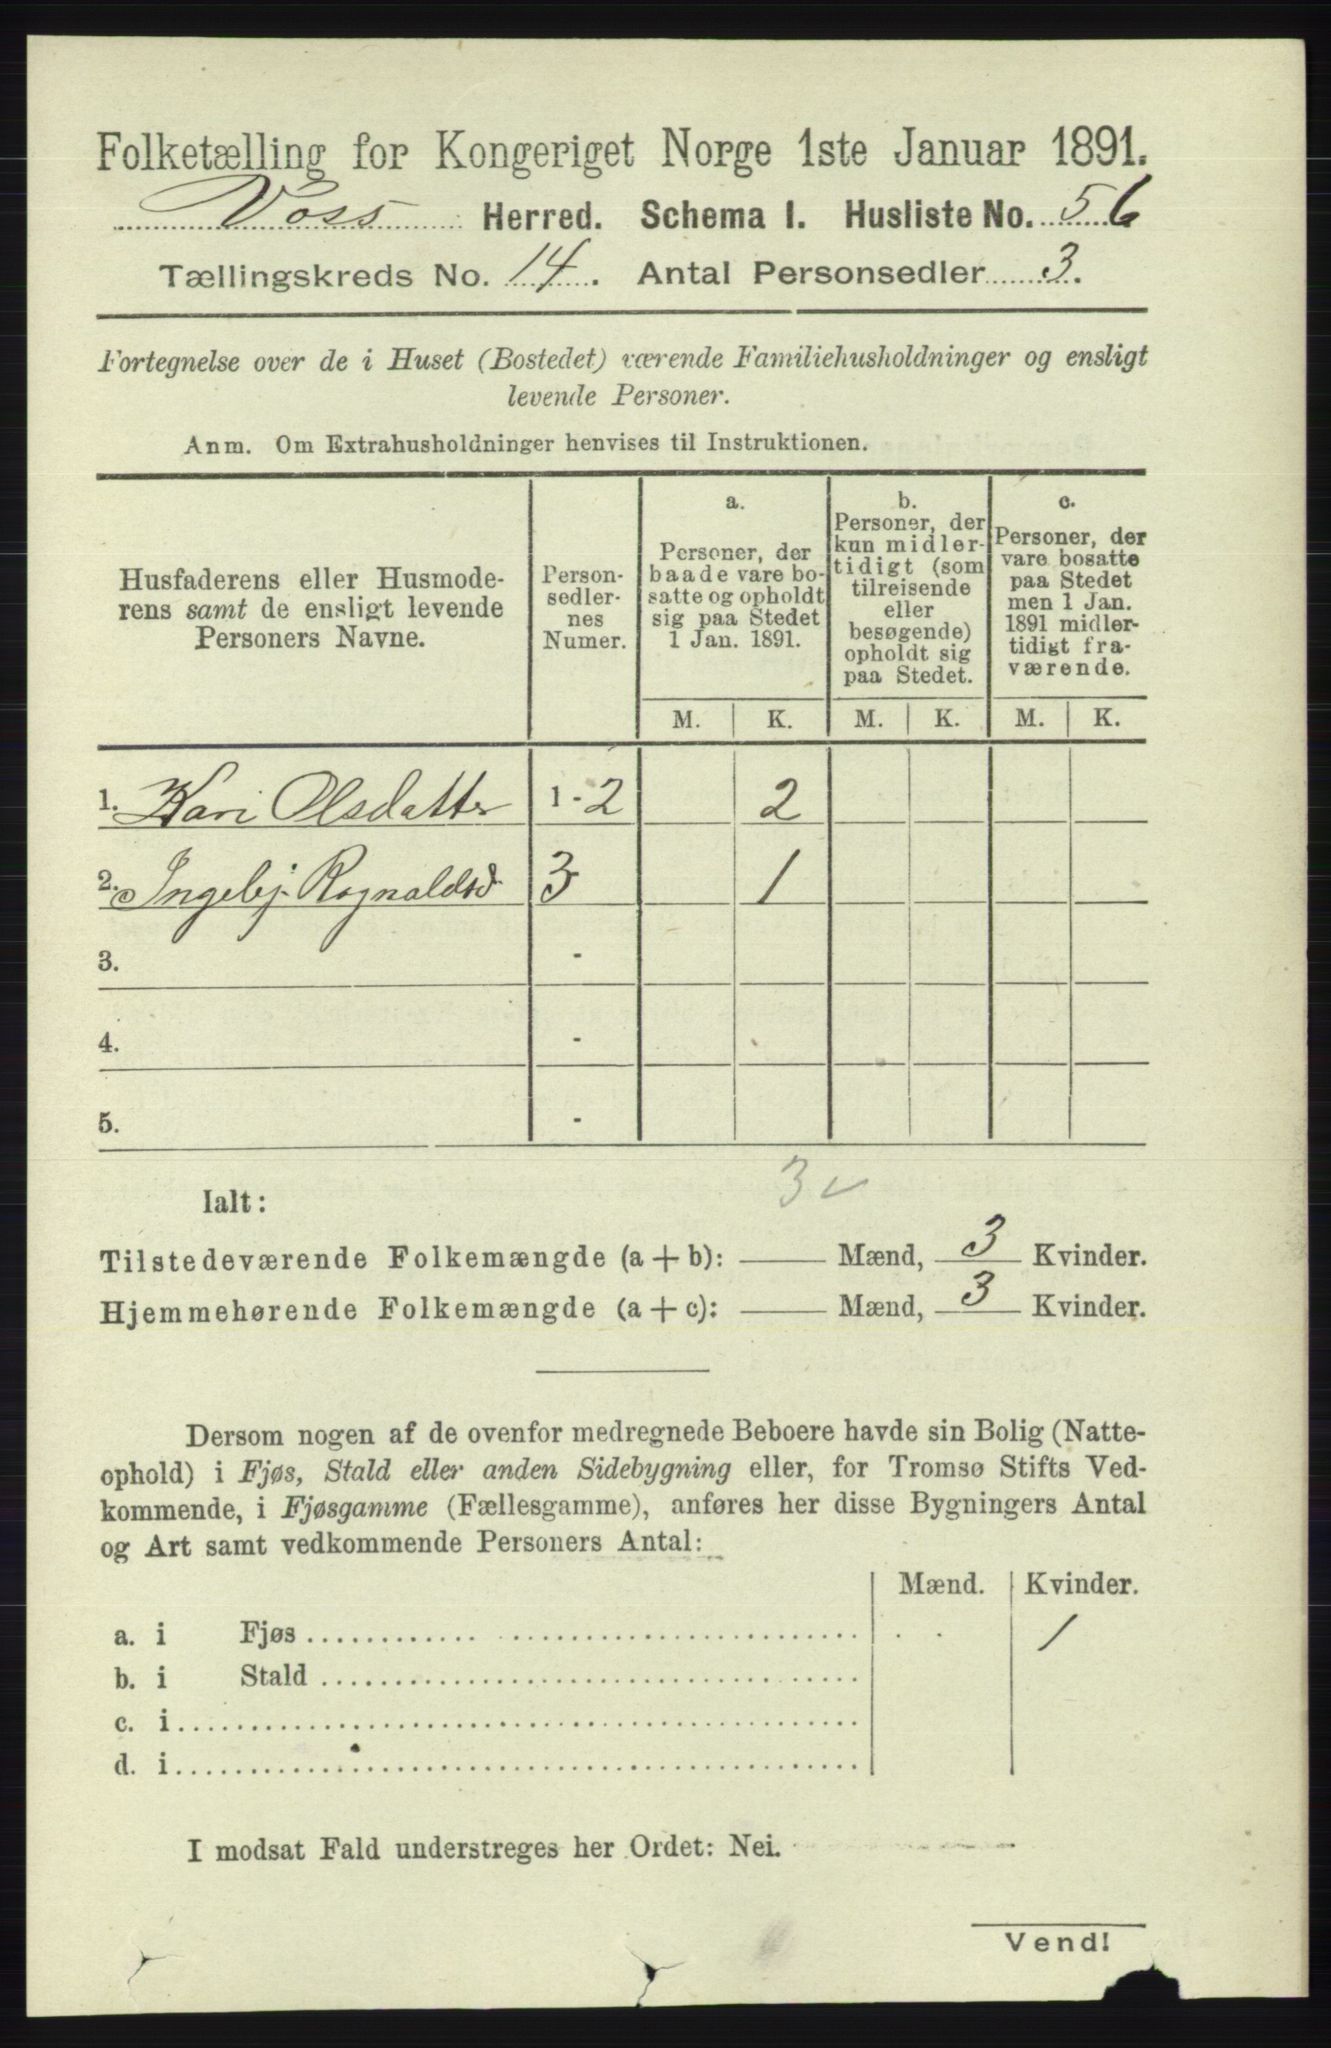 Folketælling for Kongeriget Norge 1ste Januar 1891.
Voss Herred. Schema I. Husliste No. 56
Tællingskreds No. 14. Antal Personsedler 3.
Fortegnelse over de i Huset (Bostedet) værende Familiehusholdninger og ensligt
levende Personer.
Anm. Om Extrahusholdninger henvises til Instruktionen.
Husfaderens eller Husmode-
rens samt de ensligt levende
Personers Navne.
Person-
sedler-
nes
Numer.
a.
Personer, der
baade vare bo-
satte og opholdt
sig paa Stedet
1 Jan. 1891.
b.
Personer, der
kun midler-
tidigt (som
tilreisende
eller
besøgende)
opholdt sig
paa Stedet.
c.
Personer, der
vare bosatte
paa Stedet
men 1 Jan.
1891 midler-
tidigt fra-
værende.
M. K. M. K. M. K.
1. Kari Olsdatter 1-2 2
2. Ingebj. Ragnaldsd 3 1
3. -
4. -
5. -
3
Ialt:
Tilstedeværende Folkemængde (a + b): — Mænd, 3 Kvinder.
Hjemmehørende Folkemængde (a + c): — Mænd, 3 Kvinder.
Dersom nogen af de ovenfor medregnede Beboere havde sin Bolig (Natte-
ophold) i Fjøs, Stald eller anden Sidebygning eller, for Tromsø Stifts Ved-
kommende, i Fjøsgamme (Fællesgamme), anføres her disse Bygningers Antal
og Art samt vedkommende Personers Antal:
Mænd. Kvinder.
a. i Fjøs 1
b. i Stald
c. i
d. i
I modsat Fald understreges her Ordet: Nei.
Vend!